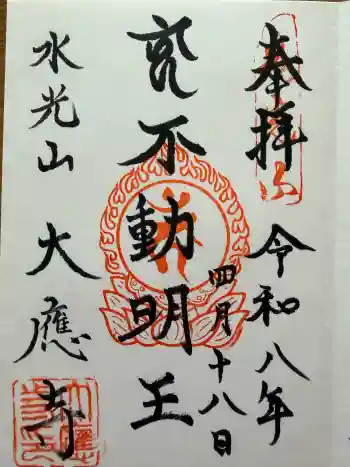 奉拝
令和八年
四月十八日
不動明王
水光山
大應寺